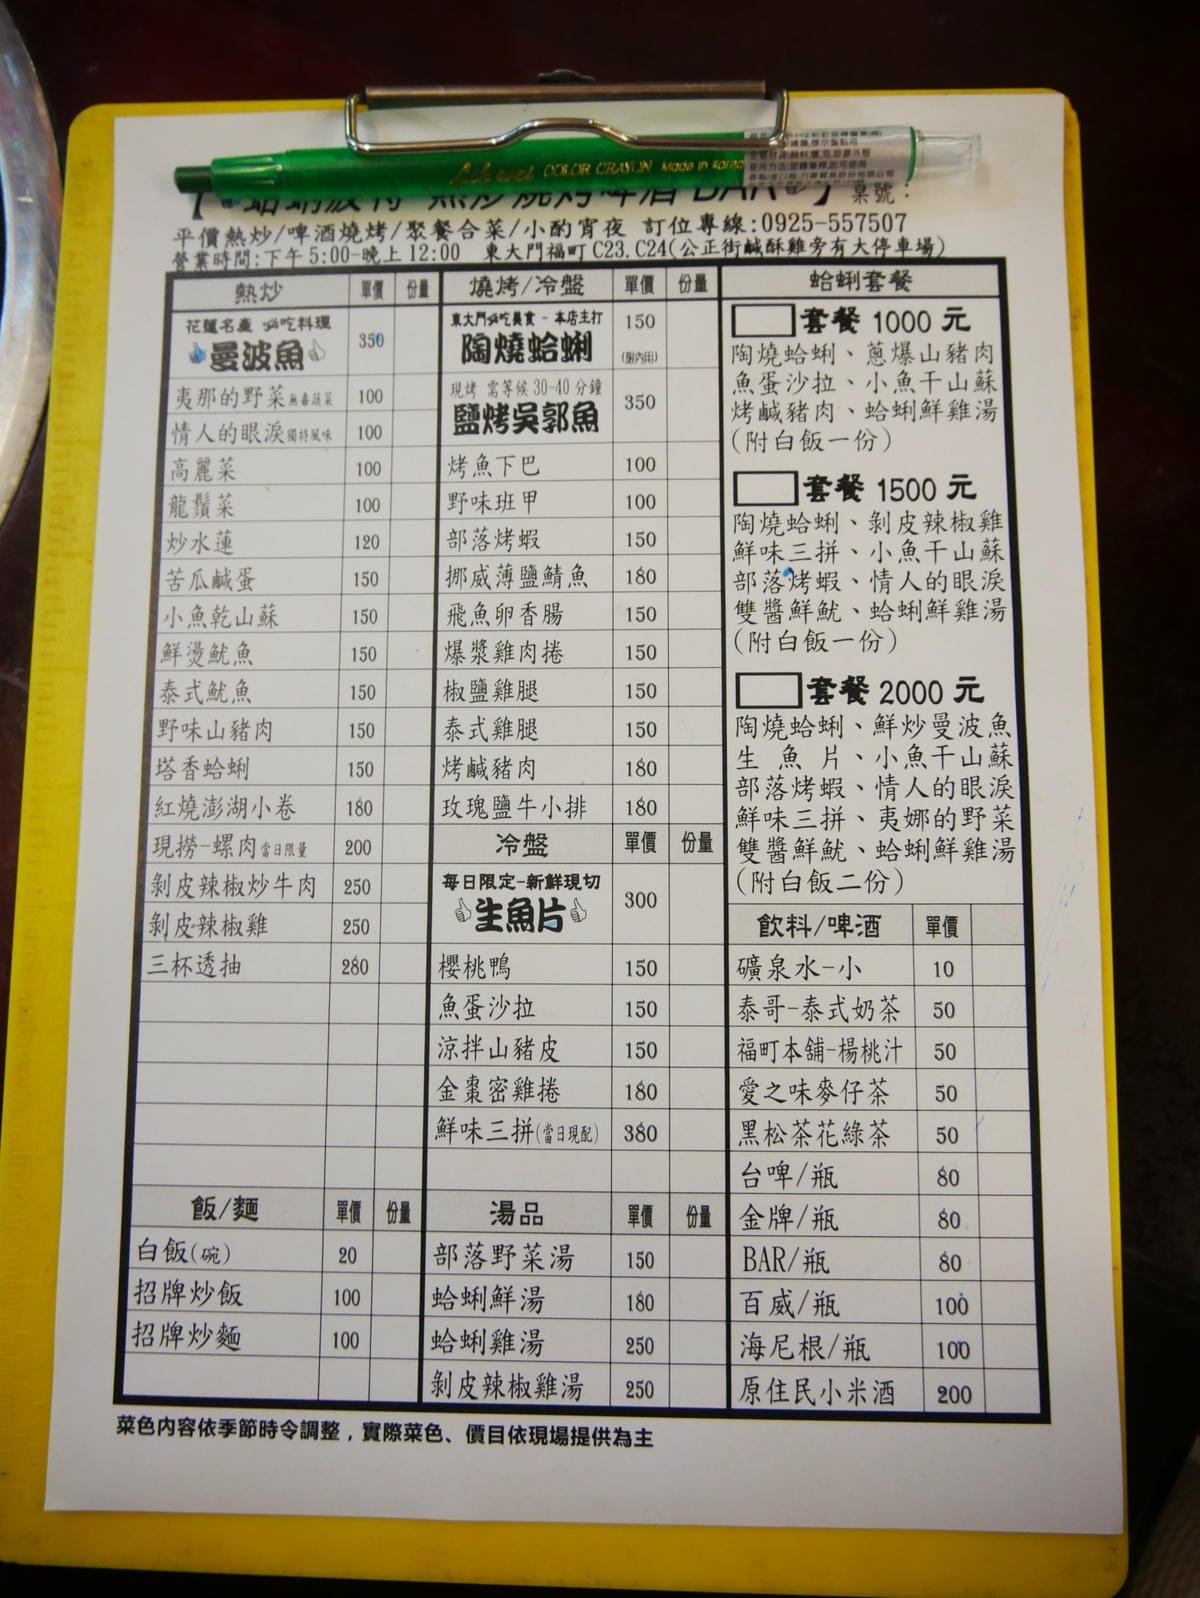 Ash wei COLOR CRAYON Made in Korea
熱炒燒烤啤酒 BAR 】 桌號:
平價熱炒/啤酒燒烤/聚餐合菜/小酌宵夜 訂位專線:0925-557507
營業時間:下午 5:00-晚上 12:00 東大門福町 C23.C24(公正街鹹酥雞旁有大停車場)
熱炒 單價 份量
花蓮名產 必吃料理
曼波魚 350
夷那的野菜無毒蔬菜 100
情人的眼淚獨特風味 100
高麗菜 100
龍鬚菜 100
炒水蓮 120
苦瓜鹹蛋 150
小魚乾山蘇 150
鮮燙魷魚 150
泰式魷魚 150
野味山豬肉 150
塔香蛤蜊 150
紅燒澎湖小卷 180
現撈-螺肉當日限量 200
剝皮辣椒炒牛肉 250
剝皮辣椒雞 250
三杯透抽 280
飯/麵 單價 份量
白飯(碗) 20
招牌炒飯 100
招牌炒麵 100
燒烤/冷盤 單價 份量
東大門必吃美食-本店主打
陶燒蛤蜊 150
(限內用)
現烤 需等候 30-40 分鐘
鹽烤吳郭魚 350
烤魚下巴 100
野味班甲 100
部落烤蝦 150
挪威薄鹽鯖魚 180
飛魚卵香腸 150
爆漿雞肉捲 150
椒鹽雞腿 150
泰式雞腿 150
烤鹹豬肉 180
玫瑰鹽牛小排 180
冷盤 單價 份量
每日限定-新鮮現切
生魚片 300
櫻桃鴨 150
魚蛋沙拉 150
涼拌山豬皮 150
金棗密雞捲 180
鮮味三拼(當日現配) 380
湯品 單價 份量
部落野菜湯 150
蛤蜊鮮湯 180
蛤蜊雞湯 250
剝皮辣椒雞湯 250
蛤蜊套餐
套餐 1000 元
陶燒蛤蜊、蔥爆山豬肉
魚蛋沙拉、小魚干山蘇
烤鹹豬肉、蛤蜊鮮雞湯
(附白飯一份)
套餐 1500 元
陶燒蛤蜊、剝皮辣椒雞
鮮味三拼、小魚干山蘇
部落烤蝦、情人的眼淚
雙醬鮮魷、蛤蜊鮮雞湯
(附白飯一份)
套餐 2000 元
陶燒蛤蜊、鮮炒曼波魚
生 魚 片、小魚干山蘇
部落烤蝦、情人的眼淚
鮮味三拼、夷娜的野菜
雙醬鮮魷、蛤蜊鮮雞湯
(附白飯二份)
飲料/啤酒 單價
礦泉水-小 10
泰哥-泰式奶茶 50
福町本舖-楊桃汁 50
愛之味麥仔茶 50
黑松茶花綠茶 50
台啤/瓶 80
金牌/瓶 80
BAR/瓶 80
百威/瓶 100
海尼根/瓶 100
原住民小米酒 200
菜色內容依季節時令調整，實際菜色、價目依現場提供為主